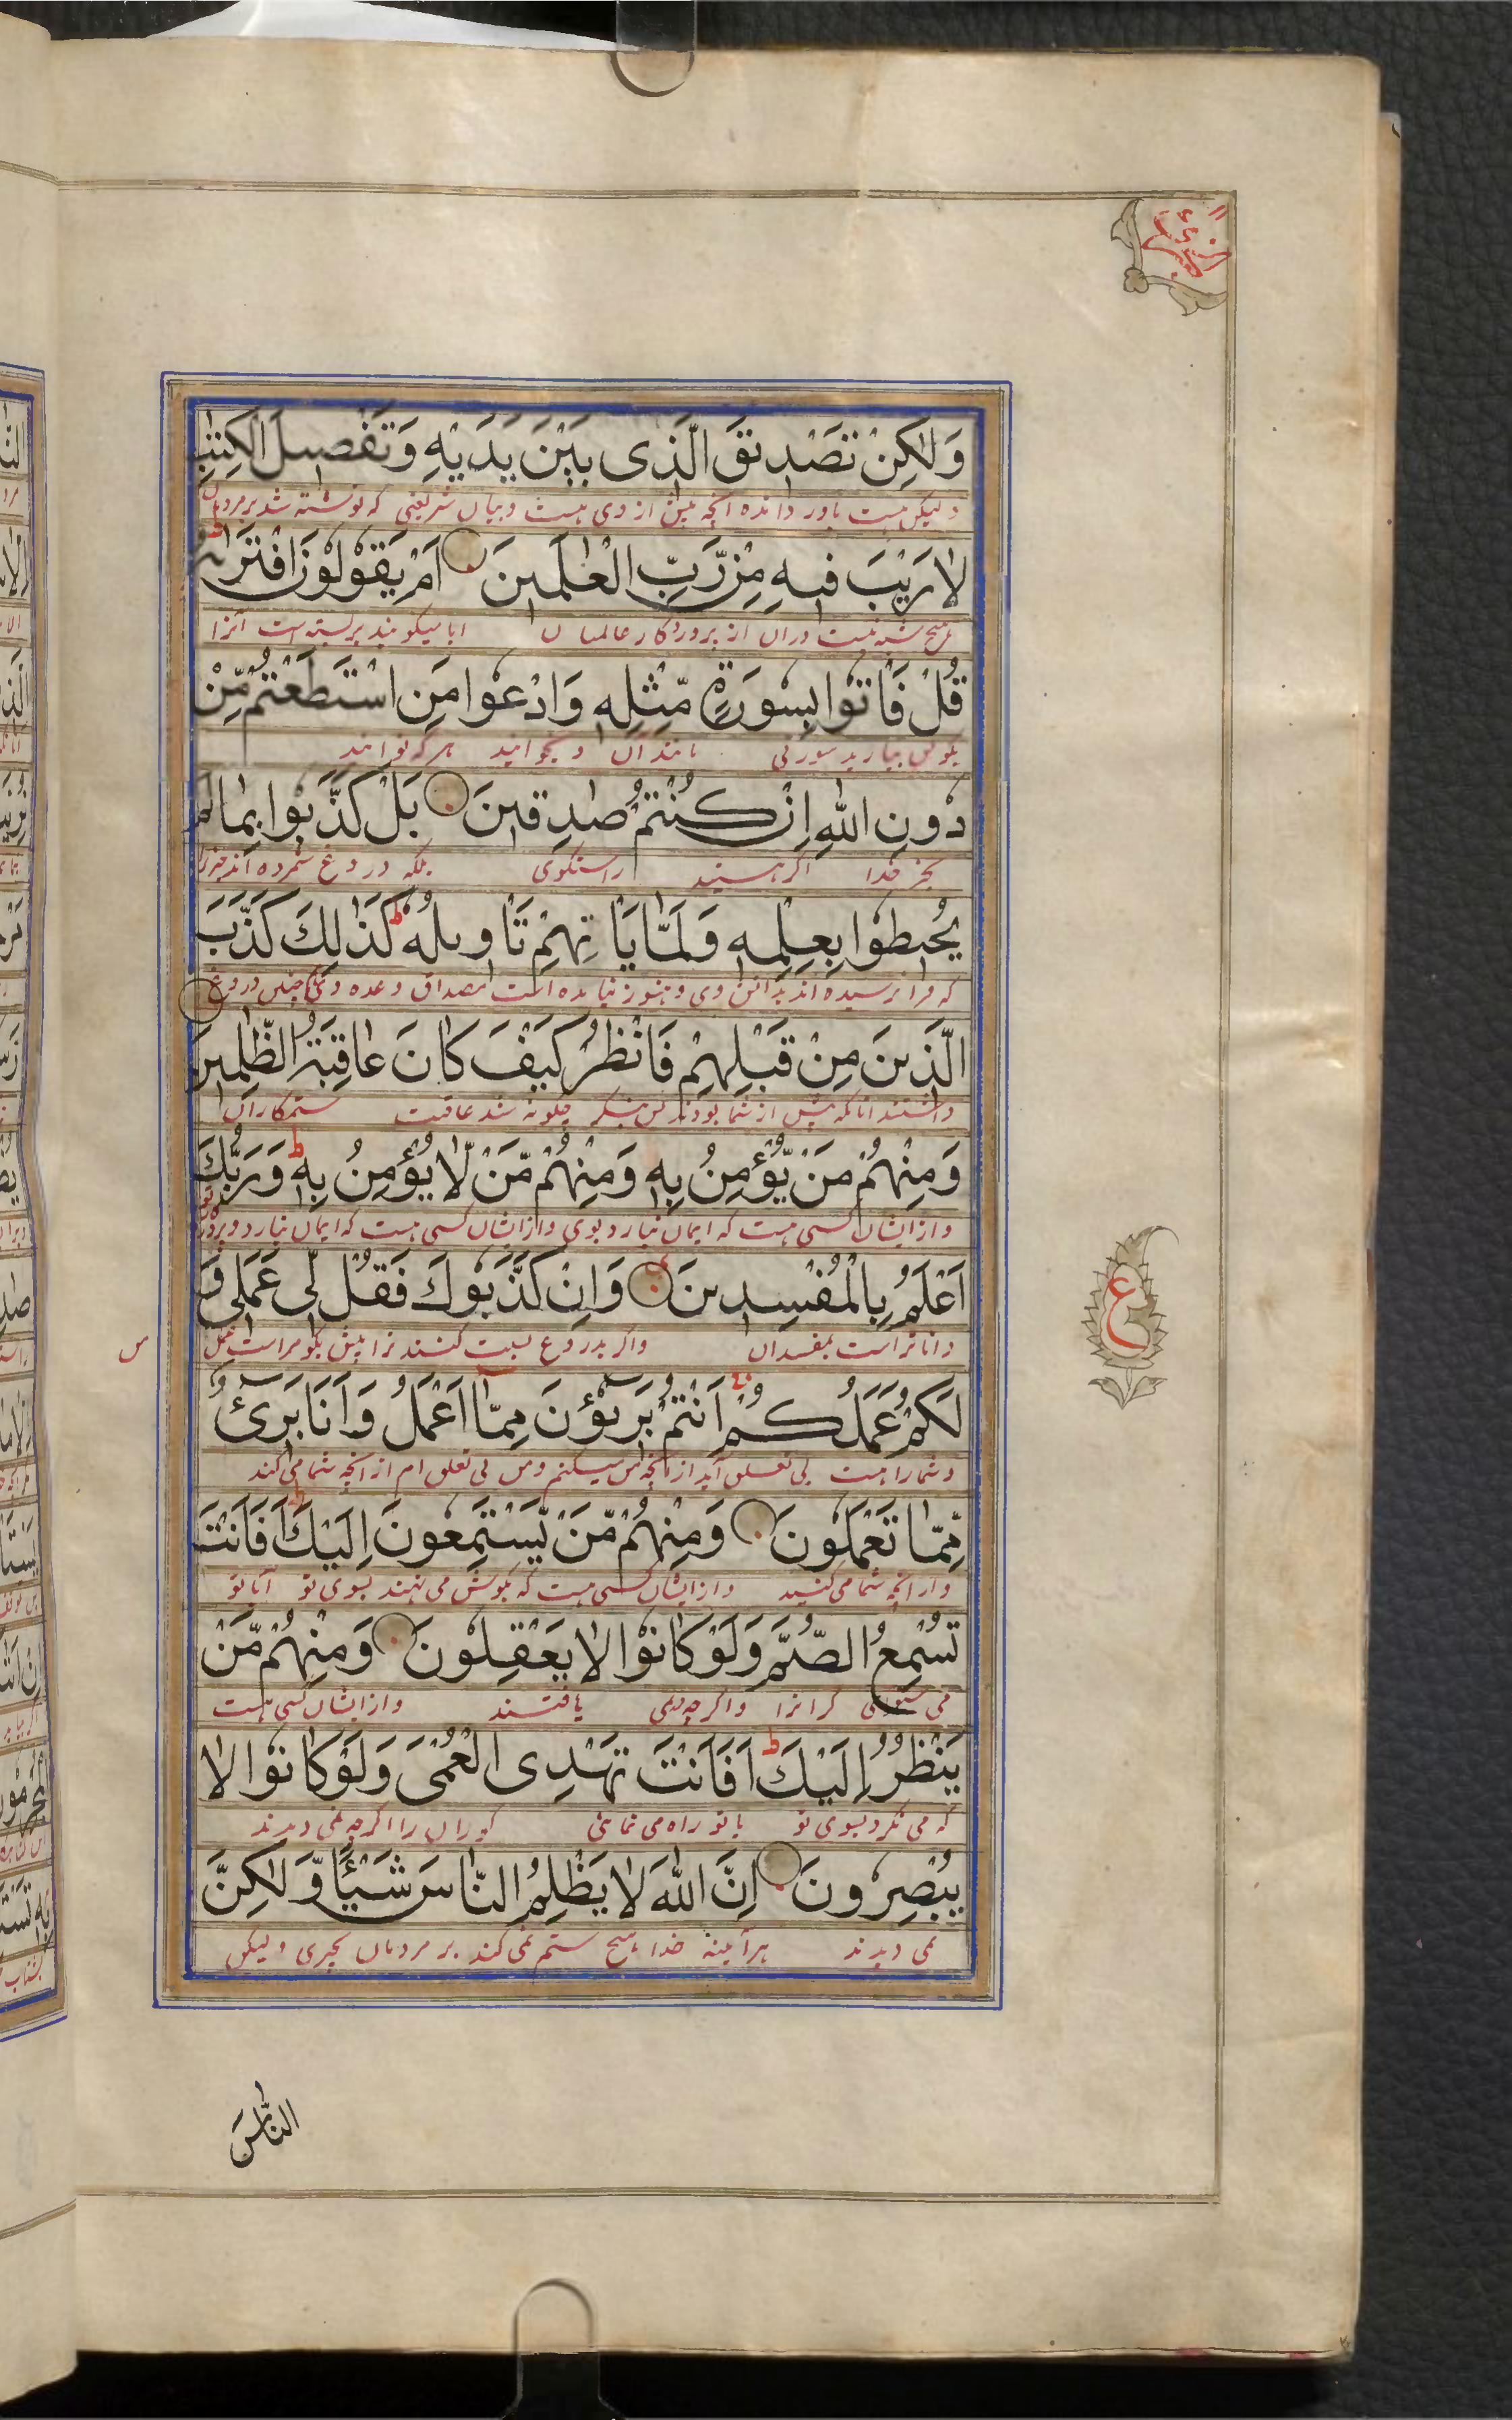 وَلٰكِنْ تَصْدِیقَ الَّذِی بَیْنَ یَدَیْهِ وَتَفْصِیلَ الْكِتٰبِ
ولیکن هست باور داننده آنچه پیش از وی هست و بیان شریعتی که نوشته شد بر مردمان
لَا رَیْبَ فِیهِ مِنْ رَّبِّ الْعٰلَمِینَ اَمْ یَقُولُونَ افْتَرٰىهُ ط
هیچ شبه نیست دران از پروردگار عالمیان ایا میکویند بربسته است آنرا
قُلْ فَاْتُوا بِسُورَةٍ مِّثْلِهٖ وَادْعُوا مَنِ اسْتَطَعْتُمْ مِّنْ
بکو پس بیارید سورتی مانند آن و بخوانید هر که توانید
دُونِ اللّٰهِ اِنْ كُنْتُمْ صٰدِقِینَ بَلْ كَذَّبُوا بِمَا لَمْ
بجز خدا اکر هستید راستکوی بلکه دروغ شمرده اند چیزیرا
یُحِیطُوا بِعِلْمِهٖ وَلَمَّا یَاْتِهِمْ تَاْوِیلُهٗ ط كَذٰلِكَ كَذَّبَ
که فرا نرسیده اند بدانش وی و هنوز نیامده است مصداق وعده وی همچنین دروغ
الَّذِینَ مِنْ قَبْلِهِمْ فَانْظُرْ كَیْفَ كَانَ عَاقِبَةُ الظّٰلِمِینَ
داشتند آنانکه پیش از شما بودند پس بنکر چکونه شد عاقبت ستمکاران
وَمِنْهُمْ مَنْ یُّؤْمِنُ بِهٖ وَمِنْهُمْ مَّنْ لَّا یُؤْمِنُ بِهٖ ط وَرَبُّكَ
و از ایشان کسی هست که ایمان نیارد بوی و از ایشان کسی هست که ایمان نیارد و پروردکار
اَعْلَمُ بِالْمُفْسِدِینَ وَاِنْ كَذَّبُوكَ فَقُلْ لِّی عَمَلِی وَ
داناتر است بمفسدان و اکر بدروغ نسبت کنند ترا پس بکو مراست عمل
لَكُمْ عَمَلُكُمْ اَنْتُمْ بَرِیْٓؤُنَ مِمَّٓا اَعْمَلُ وَاَنَا بَرِیْٓءٌ
و شما را هست بی تعلق آید از آنچه من میکنم و من بی تعلق ام از آنچه شما می کند
مِّمَّا تَعْمَلُونَ وَمِنْهُمْ مَّنْ یَّسْتَمِعُونَ اِلَیْكَ ط اَفَاَنْتَ
و از انچه شما می کنید و از ایشان کسی هست که بکوش می نهند بسوی تو آیا تو
تُسْمِعُ الصُّمَّ وَلَوْ كَانُوا لَا یَعْقِلُونَ وَمِنْهُمْ مَّنْ
می شنوانی کرانرا و اکرچه یافتند و از ایشان کسی هست
یَنْظُرُ اِلَیْكَ ط اَفَاَنْتَ تَهْدِی الْعُمْیَ وَلَوْ كَانُوا لَا
که می نکرد بسوی تو یا تو راه می نمائی کوران را اکرچه نمی دیدند
یُبْصِرُونَ اِنَّ اللّٰهَ لَا یَظْلِمُ النَّاسَ شَیْئًا وَّلٰكِنَّ
نمی دیدند هر آئینه خدا هیچ ستم نمی کند بر مردمان بچیزی ولیکن
النَّاسَ
ع